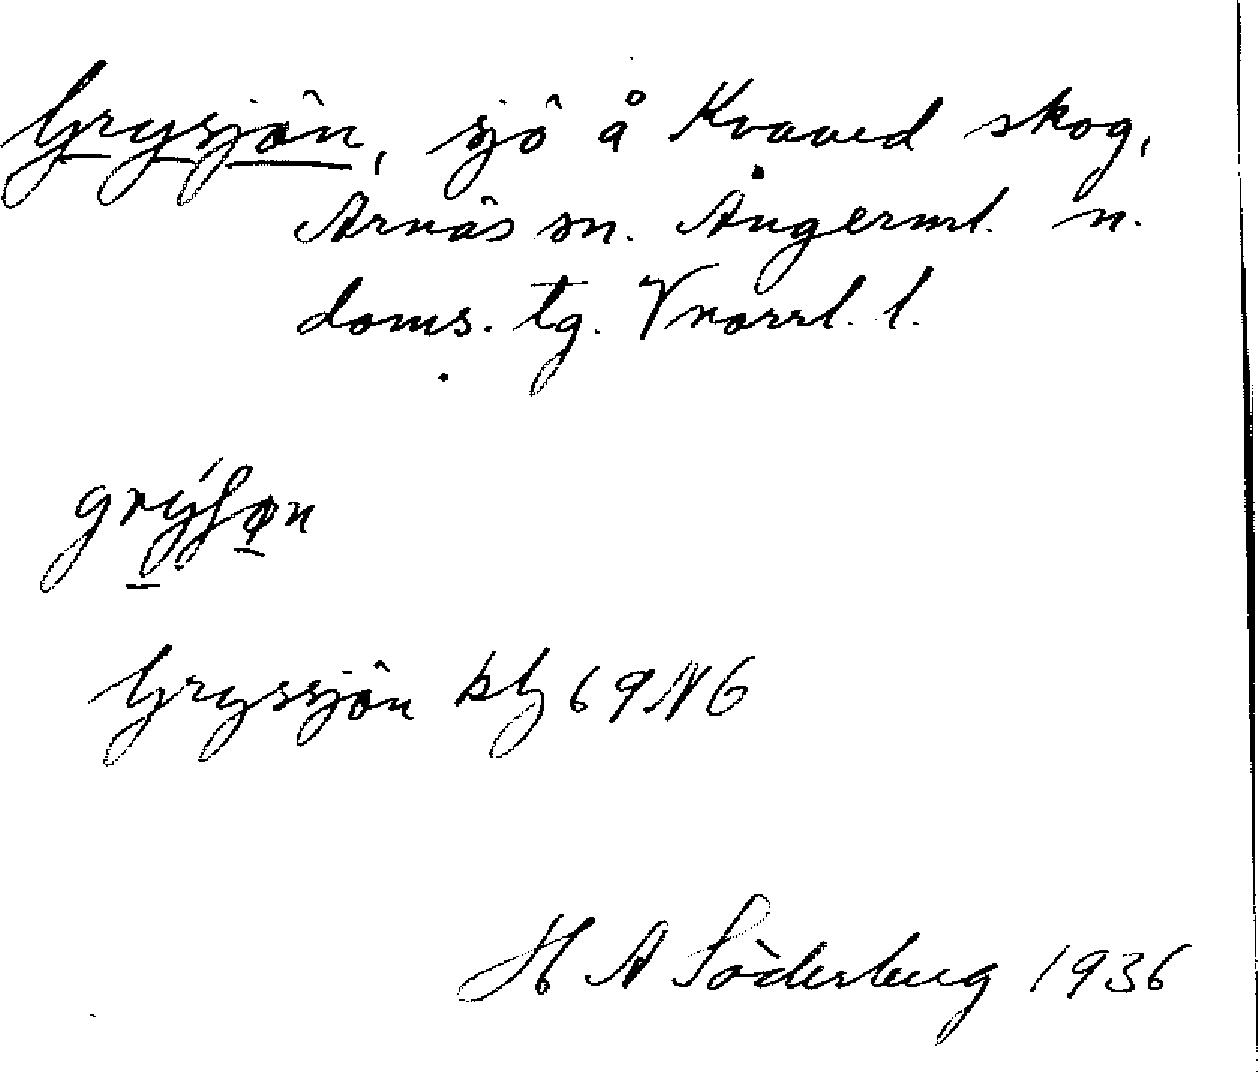 Grysjön, sjö å Kvaved skog,
Arnäs sn. Ångerml. n.
doms. tg. Vnorrl. l.
grýʃøn
Gryssjön kbl 69 NG
H A Söderberg 1936